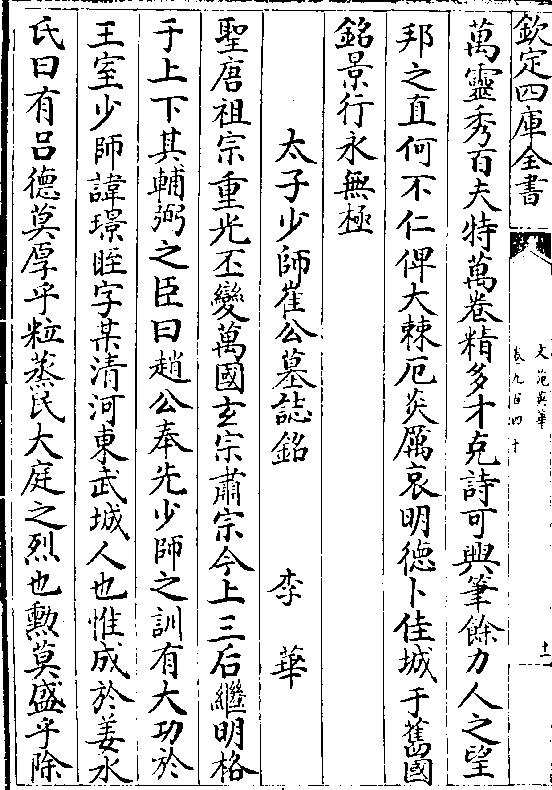 欽定四庫全書
文苑英華
卷九百四十
十二
萬靈秀百夫特萬卷精多才克詩可興筆餘力人之望
邦之直何不仁俾大棘厄炎厲哀明德卜佳城于舊國
銘景行永無極
太子少師崔公墓誌銘 李華
聖唐祖宗重光丕變萬國玄宗肅宗今上三后繼明格
于上下其輔弼之臣曰趙公奉先少師之訓有大功於
王室少師諱璟眰字某清河東武城人也惟成於姜水
氏曰有吕德莫厚乎粒蒸民大庭之烈也勲莫盛乎除